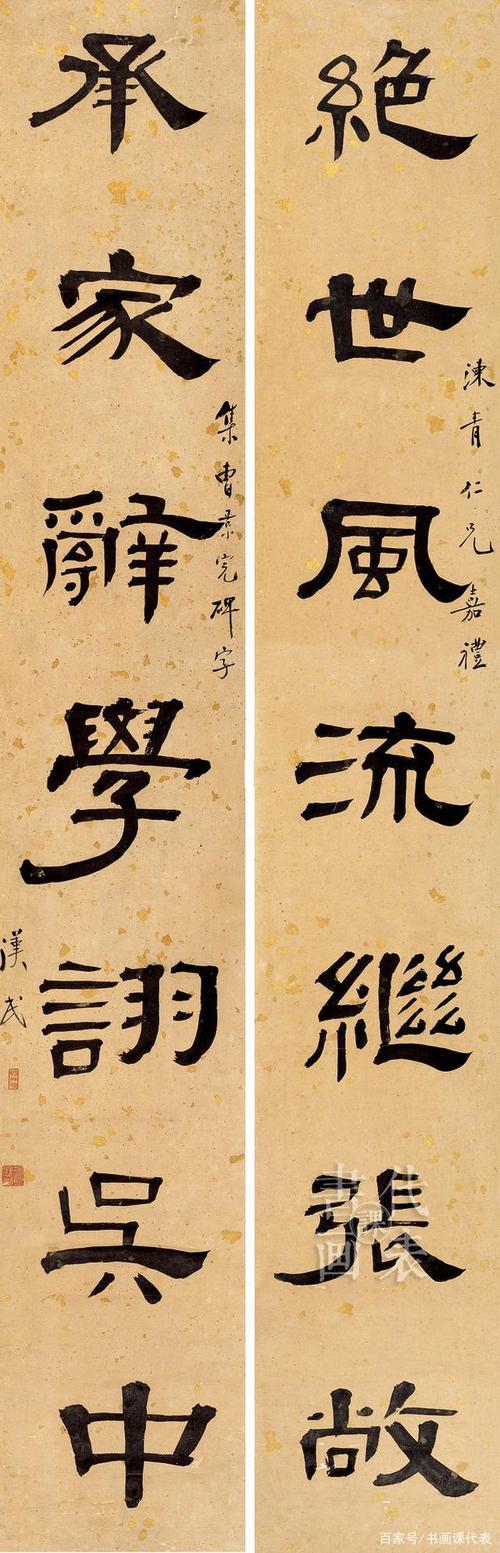 絕世風流繼張敞
涷青仁兄嘉禮
承家辭學詡吳中
集曹景完碑字
漢民
書画課代表
百家号/书画课代表